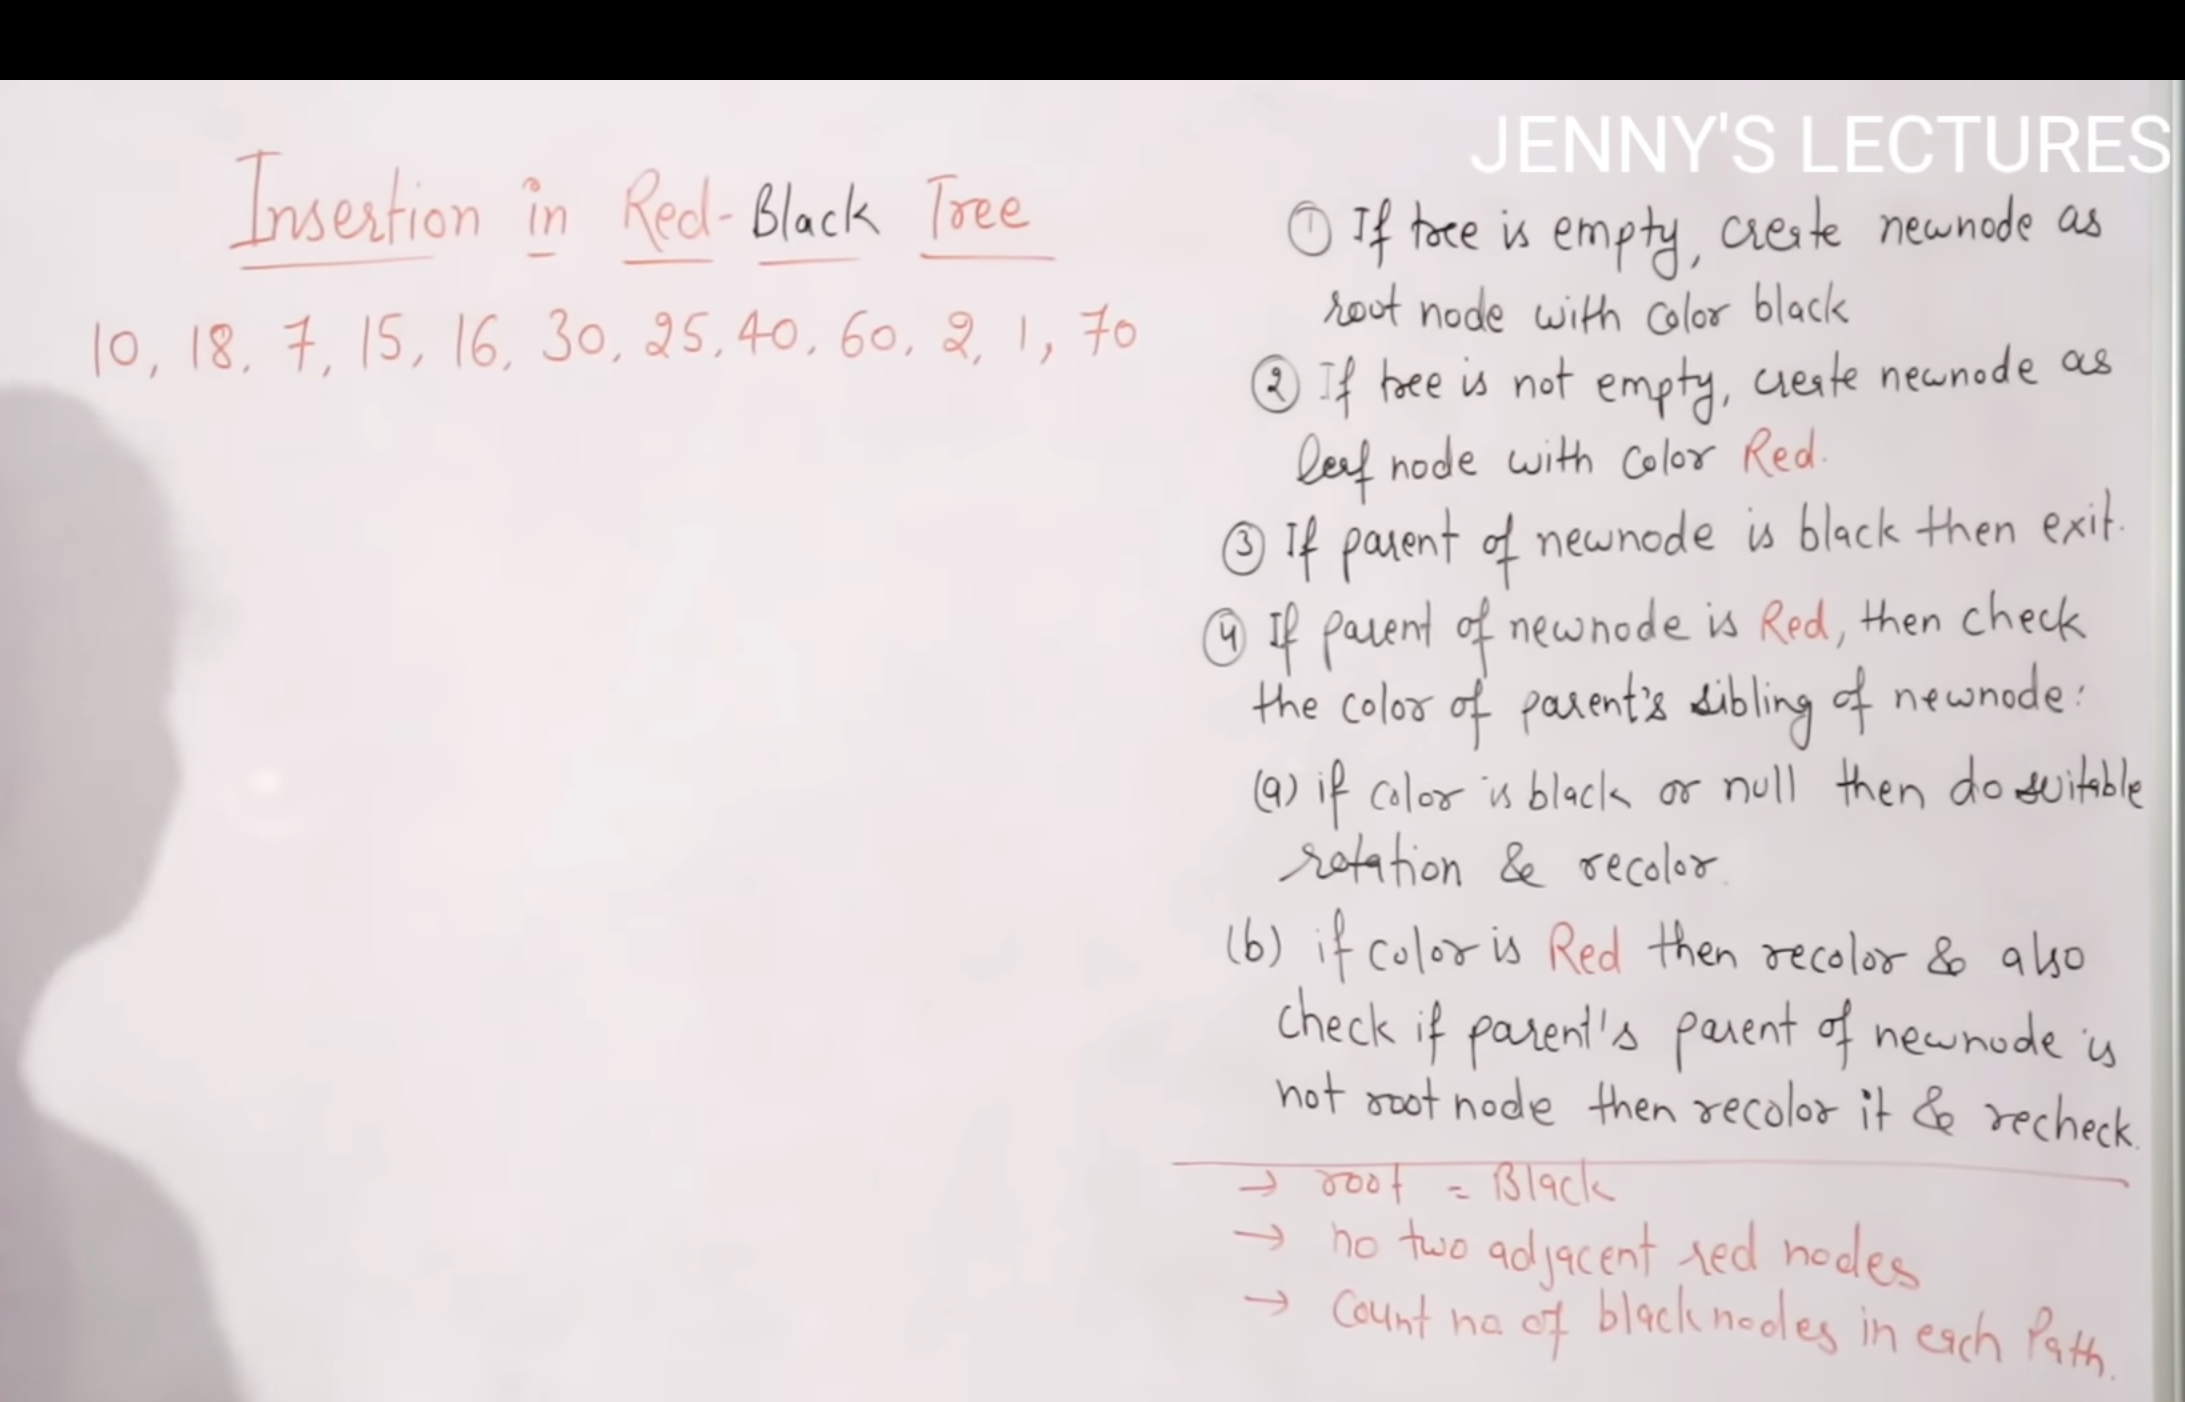 JENNY'S LECTURES
Insertion in Red-Black Tree
10, 18, 7, 15, 16, 30, 25, 40, 60, 2, 1, 70
① If tree is empty, create newnode as
root node with color black
② If tree is not empty, create newnode as
leaf node with color Red.
③ If parent of newnode is black then exit.
④ If parent of newnode is Red, then check
the color of parent's sibling of newnode:
(a) if color is black or null then do suitable
rotation & recolor.
(b) if color is Red then recolor & also
check if parent's parent of newnode is
not root node then recolor it & recheck.
→ root = Black
→ no two adjacent red nodes
→ Count no of black nodes in each Path.